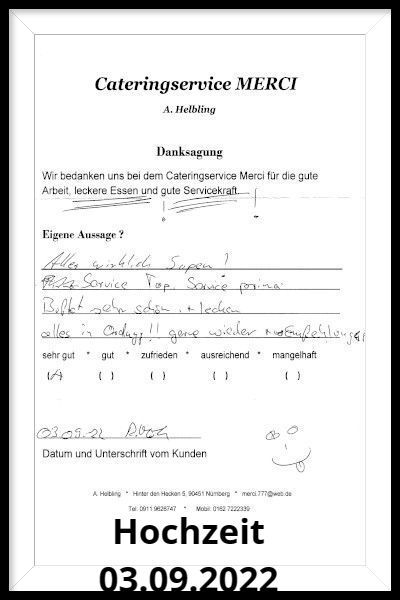 Cateringservice MERCI
A. Helbling
Danksagung
Wir bedanken uns bei dem Cateringservice Merci für die gute
Arbeit, leckere Essen und gute Servicekraft.
Eigene Aussage ?
Alles wirklich Super !
Service Top, Service prima
Büffet sehr schön + lecker
alles in Ordnung!! gerne wieder Empfehlung
sehr gut * gut * zufrieden * ausreichend * mangelhaft
( ) ( ) ( ) ( ) ( )
03.09.22
Datum und Unterschrift vom Kunden
A. Helbling * Hinter den Hecken 5, 90451 Nürnberg * merci.777@web.de
Tel: 0911 9626747 * Mobil: 0162 7222339
Hochzeit
03.09.2022